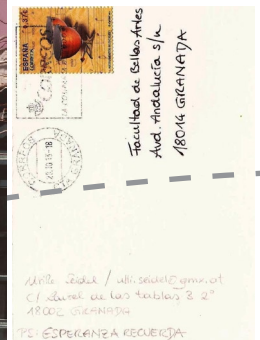 ESPAÑA
0,37€
CORREOS
CORREOS
Facultad de Bellas Artes
Avd. Andalucía s/n
18014 GRANADA
Ulli Seidel / ulli.seidel@gmx.at
C/ de las tablas 3 2º
18002 GRANADA
PS: ESPERANZA RECUERDA